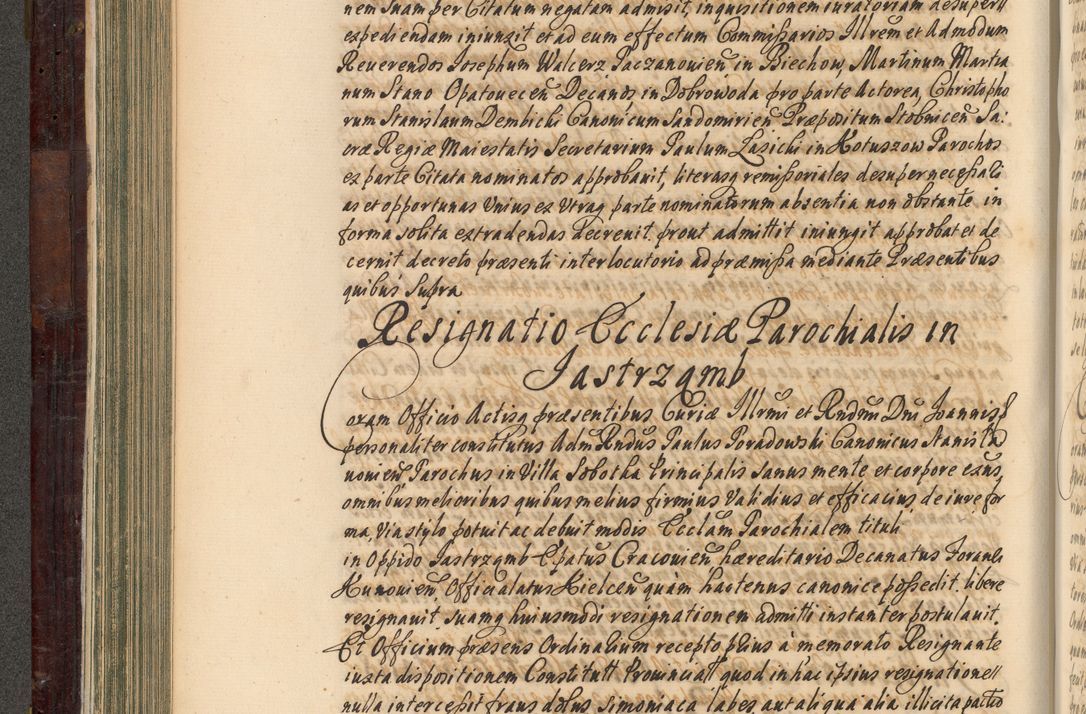 nem suam per Citatum negatam admisit, inquisitionem iuratoriam desuper
expediendam iniunxit et ad eum effectum Commissarios Illrem et Admodum
Reverendos Josephum Walcerz Paczanovien in Biechow, Martinum Martia
num Stano Opatovecen Decanos in Dobrowoda pro parte Actorea, Christopho
rum Stanislaum Dembicki Canonicum Sandomirien Præpositum Stobnicen Sa:
cræ Regiæ Maiestatis Secretarium Paulum Lasicki in Kotuszow Parochos
ex parte Citata nominatos approbavit, literasq remissoriales desuper necessari
as et opportunas Unius ex Utraq parte nominatorum absentia non obstante in
forma solita extradendas decrevit prout admittit iniungit approbat et de
cernit decreto præsenti interlocutorio ad præmissa mediante Præsentibus
quibus supra
Resignatio Ecclesiæ Parochialis in
Jastrząmb
Coram Officio Actisq præsentibus Curiæ Illrmi et Rndmi Dni Joannis
personaliter constitutus Adm Rndus Paulus Poradowski Canonicus Stanisla
novien Parochus in Villa Sobotka Principalis sanus mente et corpore exns,
omnibus melioribus quibus melius firmius Validius et efficacius de iure for
ma, Via stylo potuit ac debuit modis Ecclam Parochialem tituli
in Oppido Jastrzqmb Epatus Cracovien hæreditario Decanatus Foranei
Kunovien Officialatus Kielcen quam hactenus canonice possedit libere
resignavit suamq huiusmodi resignationem admitti instanter postulavit.
Et Officium præsens Ordinarium recepto prius à memorato Resignante
iuxta dispositionem Constitutt Provinciall quod in hac ipsius resignatione
nulla intercessit fraus dolus simoniaca labes aut aliqua alia illicita pactio